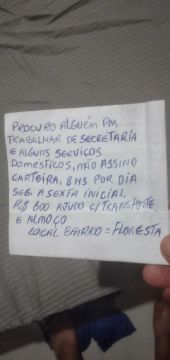 PROCURO ALGUÉM PRA
TRABALHAR DE SECRETARIA
E ALGUNS SERVIÇOS
DOMÉSTICOS, NÃO ASSINO
CARTEIRA, 8HS POR DIA
SEG A SEXTA INICIAL
R$ 600 AJUDO C/TRANSPORTE
E ALMOÇO
LOCAL BAIRRO = FLORESTA